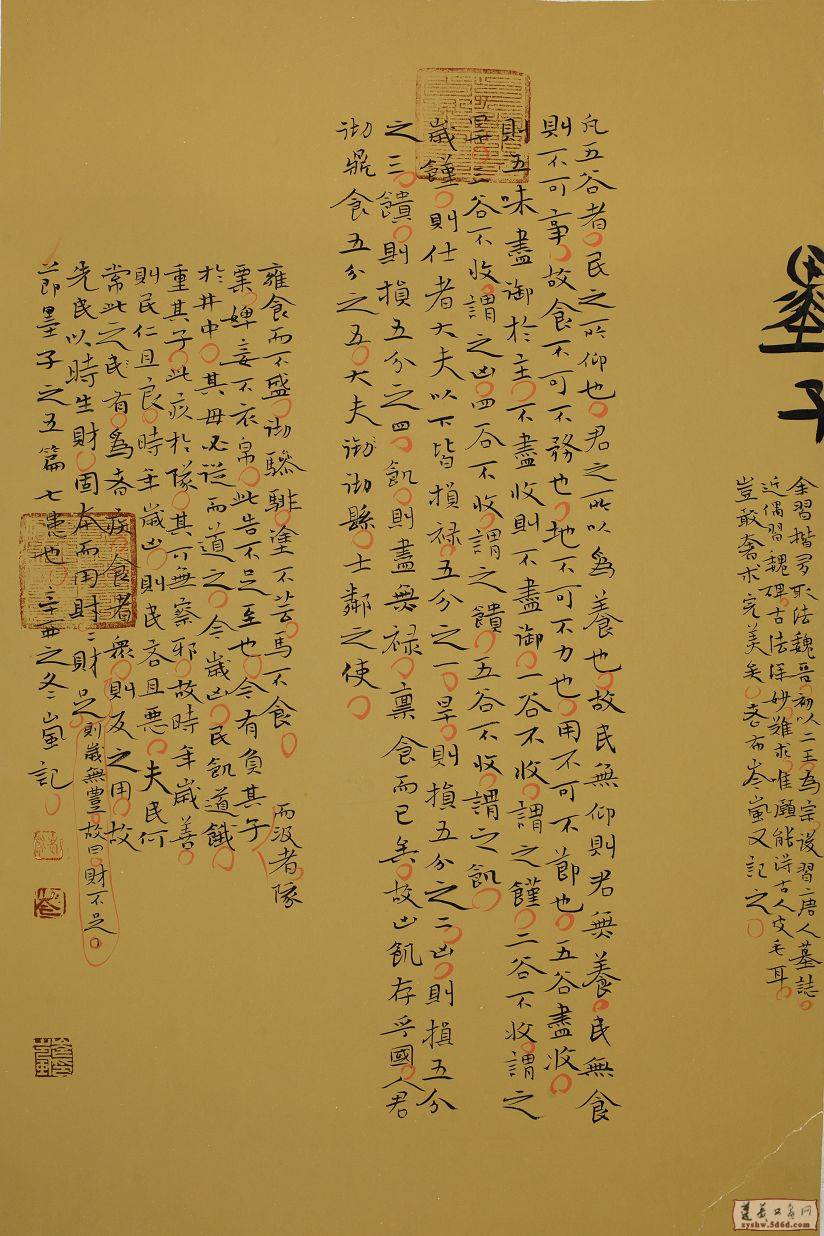 墨子
余習楷多取法魏晋初以二王為宗後習唐人墓誌
近偶習魏碑古法深妙難求唯願能得古人皮毛耳
豈敢奢求完美矣岑嵐又記之
凡五谷者民之所仰也君之所以為養也故民無仰則君無養民無食
則不可事故食不可不務也地不可不力也用不可不節也五谷盡收
則五味盡御於主不盡收則不盡御一谷不收謂之饉二谷不收謂之
旱三谷不收謂之凶四谷不收謂之饋五谷不收謂之飢
歲饉則仕者大夫以下皆損禄五分之一旱則損五分之二凶則損五分
之三饋則損五分之四飢則盡無禄稟食而已矣故凶飢存乎國人君
徹鼎食五分之五大夫徹縣士鄰之使
雍食而不盛徹驂騑塗不芸馬不食而汲者隊
粟婢妾不衣帛此告不足至也今有負其子
於井中其母必從而道之今歲凶民飢道餓
重其子此疚於隊其可無察邪故時年歲善
則民仁且良時年歲凶則民吝且惡夫民何
常此之民有為者疾食者衆則反之用故
先民以時生財固本而用財財足則歲無豐故曰財不足
節墨子之五篇七患也辛酉之冬嵐記
zyshw.5d6d.com